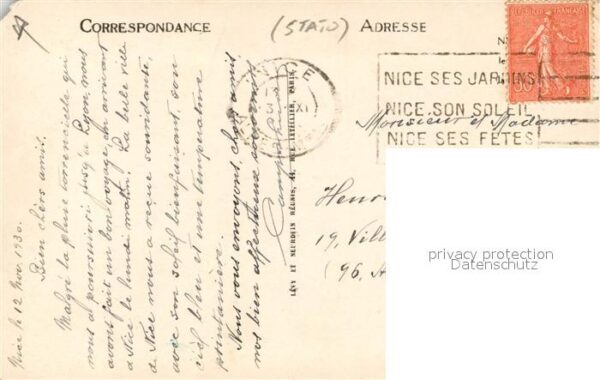 CORRESPONDANCE
(STATO)
ADRESSE
Nice le 12 Nov 1930.
Bien chers amis.
Malgré la pluie torrentielle qui
nous a poursuivi jusqu'à Lyon, nous
avons fait un bon voyage, en arrivant
à Nice le lundi matin. La belle ville
de Nice nous a reçue souriante,
avec son soleil bienfaisant, son
ciel bleu et une température
printanière.
Nous vous envoyons, chers amis,
nos bien affectueux
LÉVY ET NEURDEIN RÉUNIS, 44, RUE LETELLIER, PARIS.
NICE
XI
NICE SES JARDINS
NICE SON SOLEIL
NICE SES FÊTES
50c
Monsieur et Madame
Henri
19, Vill
(96, A
privacy protection
Datenschutz